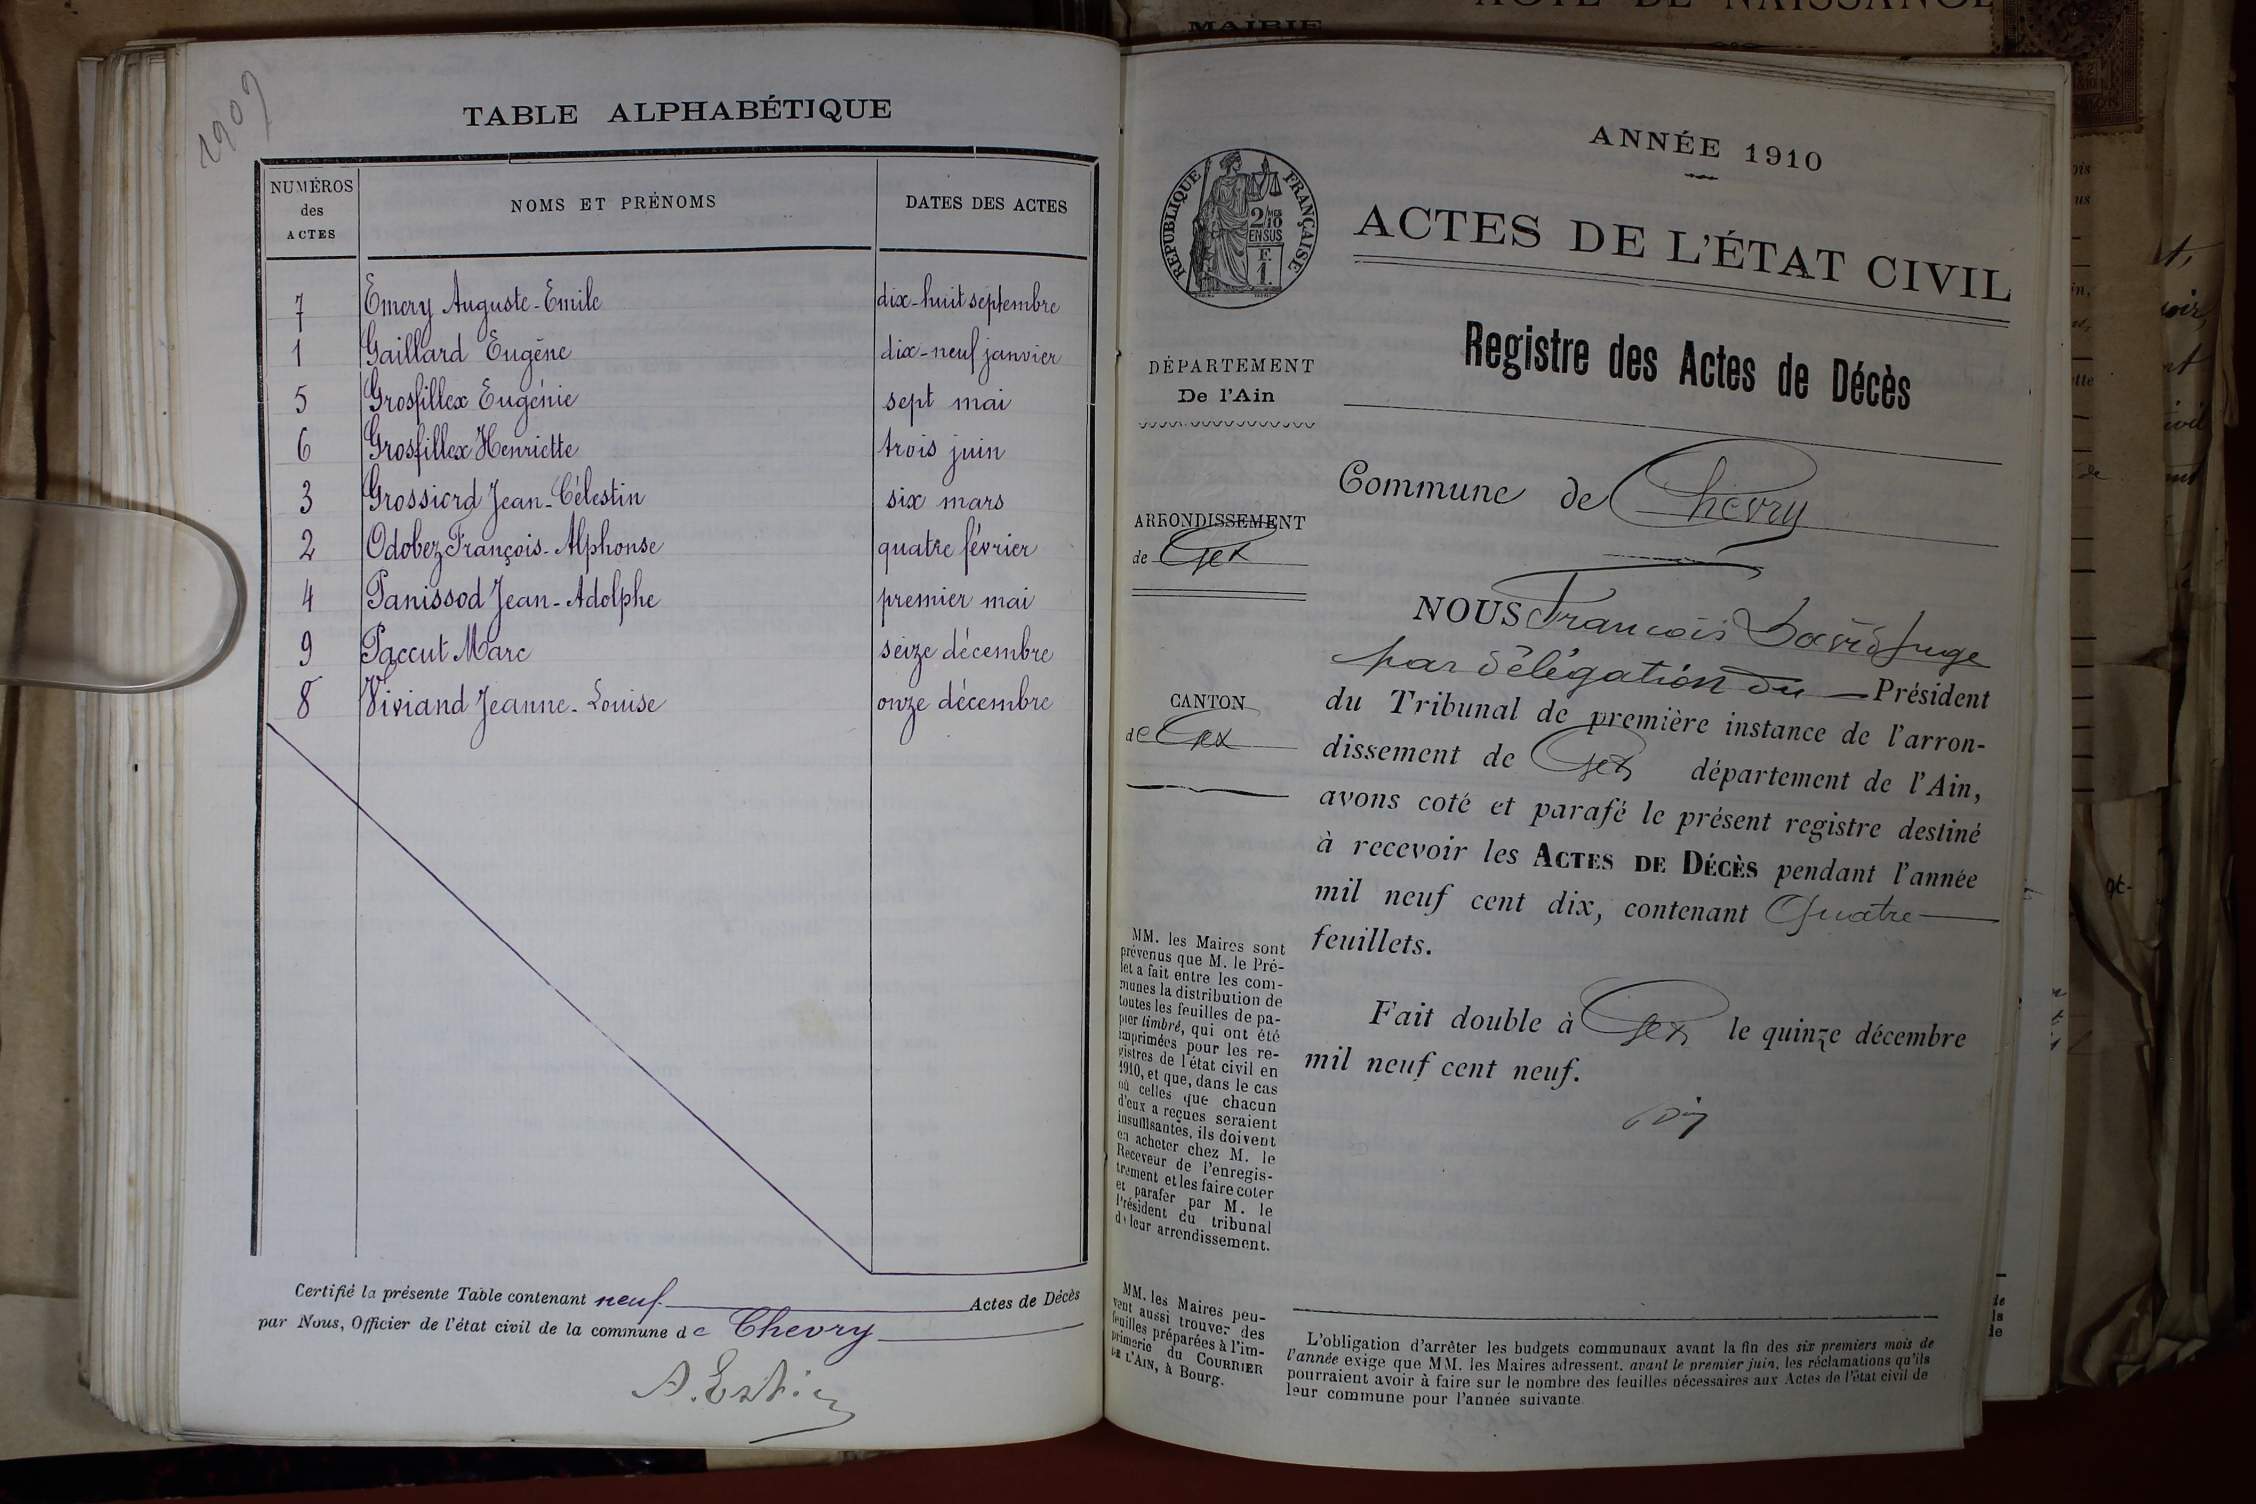 1909
TABLE ALPHABÉTIQUE
NUMÉROS
des
ACTES
NOMS ET PRÉNOMS
DATES DES ACTES
7 Emery Auguste-Emile dix-huit septembre
1 Gaillard Eugène dix-neuf janvier
5 Grosfillex Eugénie sept mai
6 Grosfillex Henriette trois juin
3 Grossiord Jean-Célestin six mars
2 Odobez François-Alphonse quatre février
4 Panissod Jean-Adolphe premier mai
9 Paccut Marc seize décembre
8 Viviand Jeanne-Louise onze décembre
Certifié la présente Table contenant neuf Actes de Décès
par Nous, Officier de l'état civil de la commune de Chevry
MAIRIE
ACTE DE NAISSANCE
ANNÉE 1910
RÉPUBLIQUE FRANÇAISE
2/10
EN SUS
F.
1.
ACTES DE L'ÉTAT CIVIL
Registre des Actes de Décès
DÉPARTEMENT
De l'Ain
Commune de Chevry
ARRONDISSEMENT
de Gex
CANTON
de Gex
NOUS François David Juge
par délégation du Président
du Tribunal de première instance de l'arron-
dissement de Gex département de l'Ain,
avons coté et parafé le présent registre destiné
à recevoir les ACTES DE DÉCÈS pendant l'année
mil neuf cent dix, contenant Quatre
feuillets.
Fait double à Gex le quinze décembre
mil neuf cent neuf.
MM. les Maires sont
prévenus que M. le Pré-
fet a fait entre les com-
munes la distribution de
toutes les feuilles de pa-
pier timbré, qui ont été
imprimées pour les re-
gistres de l'état civil en
1910, et que, dans le cas
où celles que chacun
d'eux a reçues seraient
insuffisantes, ils doivent
en acheter chez M. le
Receveur de l'enregis-
trement et les faire coter
et parafer par M. le
Président du tribunal
de leur arrondissement.
MM. les Maires peu-
vent aussi trouver des
feuilles préparées à l'im-
primerie du COURRIER
DE L'AIN, à Bourg.
L'obligation d'arrêter les budgets communaux avant la fin des six premiers mois de
l'année exige que MM. les Maires adressent, avant le premier juin, les réclamations qu'ils
pourraient avoir à faire sur le nombre des feuilles nécessaires aux Actes de l'état civil de
leur commune pour l'année suivante.